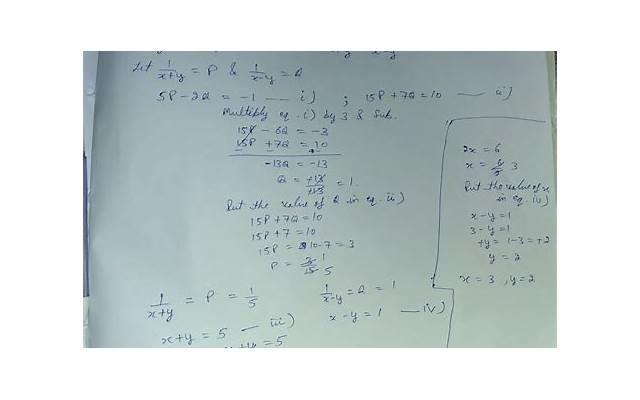 Let 1/x+y = P & 1/x-y = Q
5P - 2Q = -1 — i) ; 15P + 7Q = 10 — ii)
Multiply eq. i) by 3 & Sub.
15P - 6Q = -3
15P + 7Q = 10
- - -
-13Q = -13
Q = +13/+13 = 1.
Put the value of Q in eq. ii)
15P + 7Q = 10
15P + 7 = 10
15P = 10-7 = 3
P = 3/15 1/5
1/x+y = P = 1/5
1/x-y = Q = 1
x+y = 5 — iii)
x-y = 1 — iv)
x+y = 5
2x = 6
x = 6/2 3
Put the value of x
in eq. iv)
x-y = 1
3-y = 1
+y = 1-3 = +2
y = 2
x = 3 , y = 2